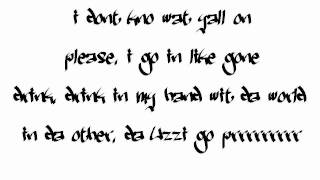 i dont, kno wat, yall on
please, i go in like gone
drink, drink in my hand wit, da world
in da other, da Uzzi go prrrrrrrrr